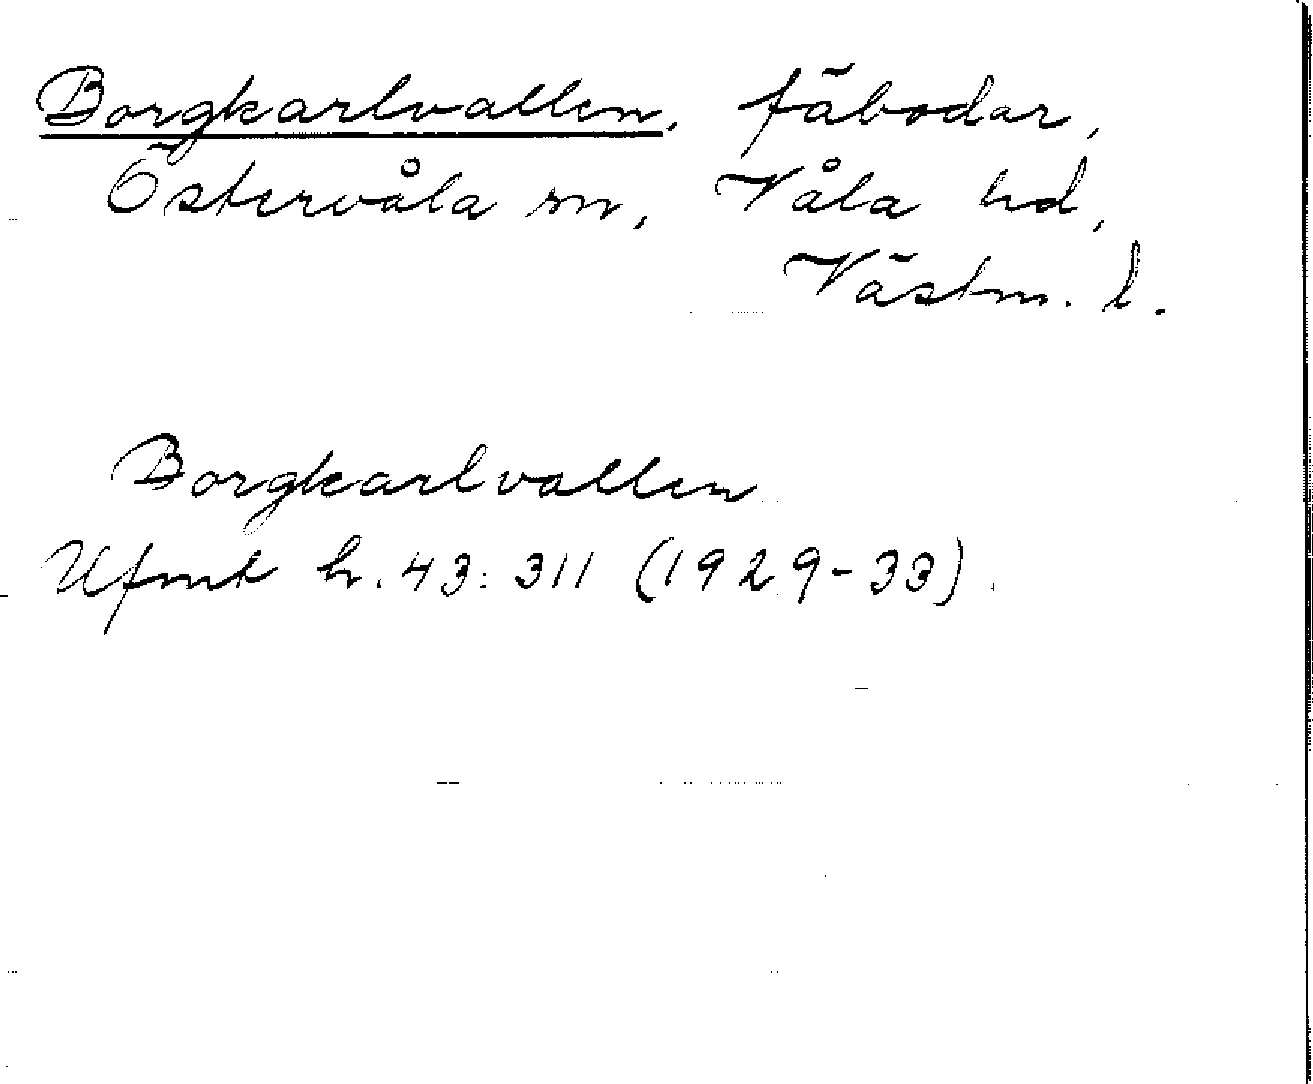 Borgkarlvallen, fäbodar,
Östervåla sn, Våla hd,
Västm. l.
Borgkarlvallen
Ufmt h. 43: 311 (1929-33).